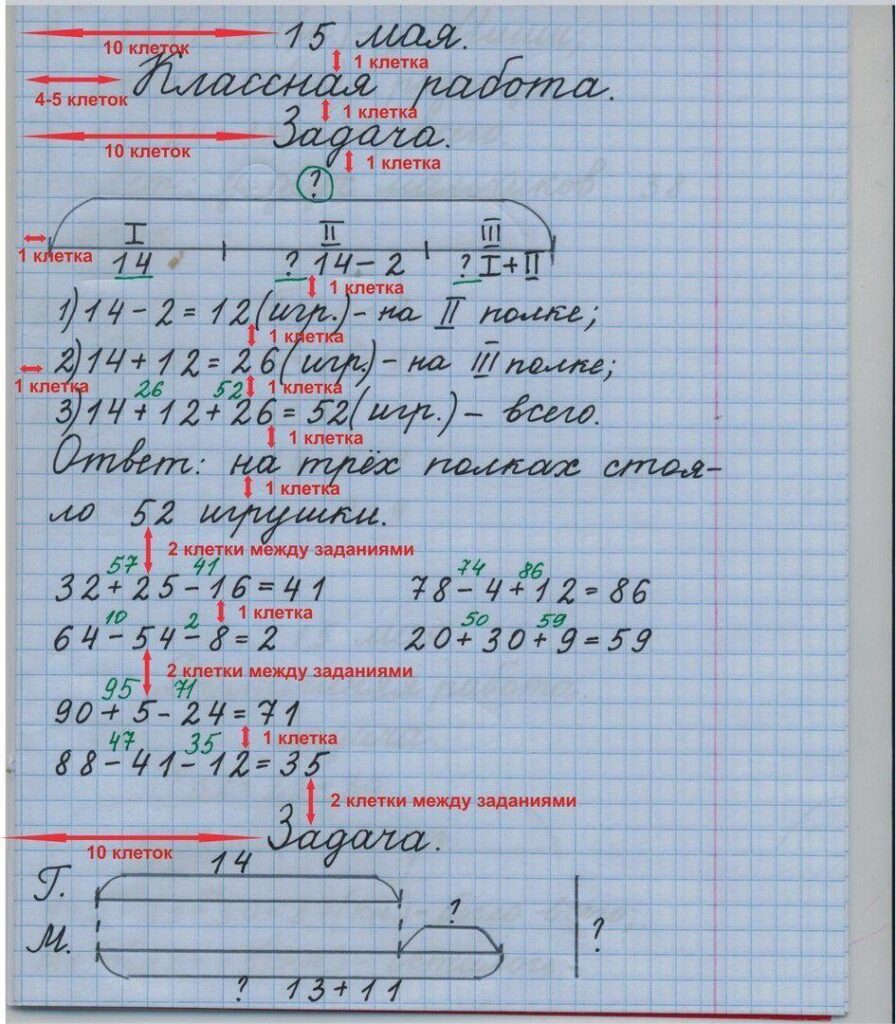 10 клеток 15 мая.
1 клетка
4-5 клеток Классная работа.
1 клетка
10 клеток Задача.
1 клетка
?
I II III
1 клетка 14 ? 14-2 ? I+II
1 клетка
1) 14-2=12(игр.)- на II полке;
1 клетка
2) 14+12=26(игр.)- на III полке;
1 клетка 1 клетка
26 52
3) 14+12+26=52(игр.)- всего.
1 клетка
Ответ: на трёх полках стоя-
1 клетка
ло 52 игрушки.
2 клетки между заданиями
57 41 74 86
32+25-16=41 78-4+12=86
1 клетка
10 2 50 59
64-54-8=2 20+30+9=59
2 клетки между заданиями
95 71
90+5-24=71
1 клетка
47 35
88-41-12=35
2 клетки между заданиями
10 клеток Задача.
14
Г.
?
М. ?
? 13+11